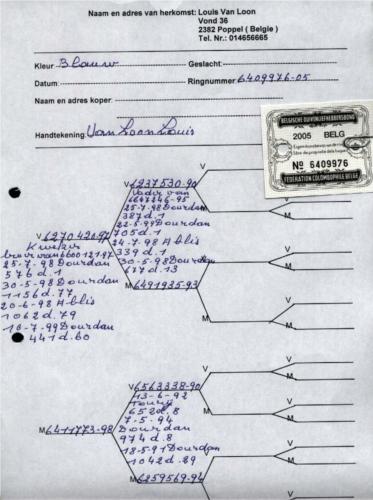 Naam en adres van herkomst: Louis Van Loon
Vond 36
2382 Poppel ( Belgie )
Tel. Nr.: 014656665
Kleur Blauw Geslacht:
Datum: Ringnummer: 6409976-05
Naam en adres koper:
Handtekening: Van Loon Louis
BELGISCHE DUIVENLIEFHEBBERSBOND
2005 BELG
No 6409976
FEDERATION COLOMBOPHILE BELGE
V
V 6237530-90
Vader van
6647246-95
25-7-98 Dourdan
387 d.1
22-5-99 Dourdan
705 d.1
24-7-98 Ablis
339 d.1
30-5-98 Dourdan
677 d.13
M
V 6270420-97
Kweker
broer van 6600127-97
25-7-98 Dourdan
576 d.1
30-5-98 Dourdan
1156 d.77
20-6-98 Ablis
1062 d.79
10-7-99 Dourdan
441 d.60
V
M 6491935-93
M
V
V 6563338-90
13-6-92
Toury
652 d.8
7-5-94
Dourdan
974 d.8
18-5-91 Dourdan
1042 d.29
M
M 6411773-98
V
M 6259569-94
M